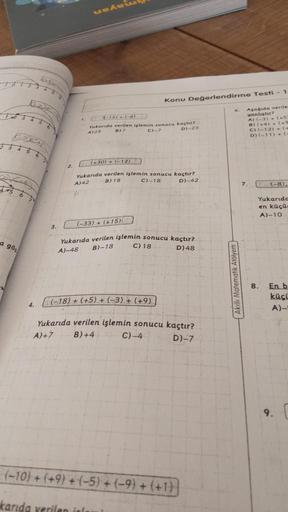 Konu Değerlendirme Testi - 1
1. (-15) + (-8)
Yukarıda verilen işlemin sonucu kaçtır?
A)23 B)7 C)-7 D)-23
2. (+30) + (-12)
Yukarıda verilen işlemin sonucu kaçtır?
A)42 B)18 C)-18 D)-42
3. (-33) + (+15)
Yukarıda verilen işlemin sonucu kaçtır?
A)-48 B)-18 C) 18 D)48
4. (-18) + (+5) + (-3) + (+9)
Yukarıda verilen işlemin sonucu kaçtır?
A)+7 B)+4 C)-4 D)-7
(-10) + (+9) + (-5) + (-9) + (+1)
karıda verilen
Akıllı Matematik Atölyem
Aşağıda verile
A) (-3) + (+5
B) (+4) + (+
C) (-12) + (+
D) (-11) + (
7. (-8),
Yukarıda
en küçü
A)-10
8. En b
küçü
A)-
9.